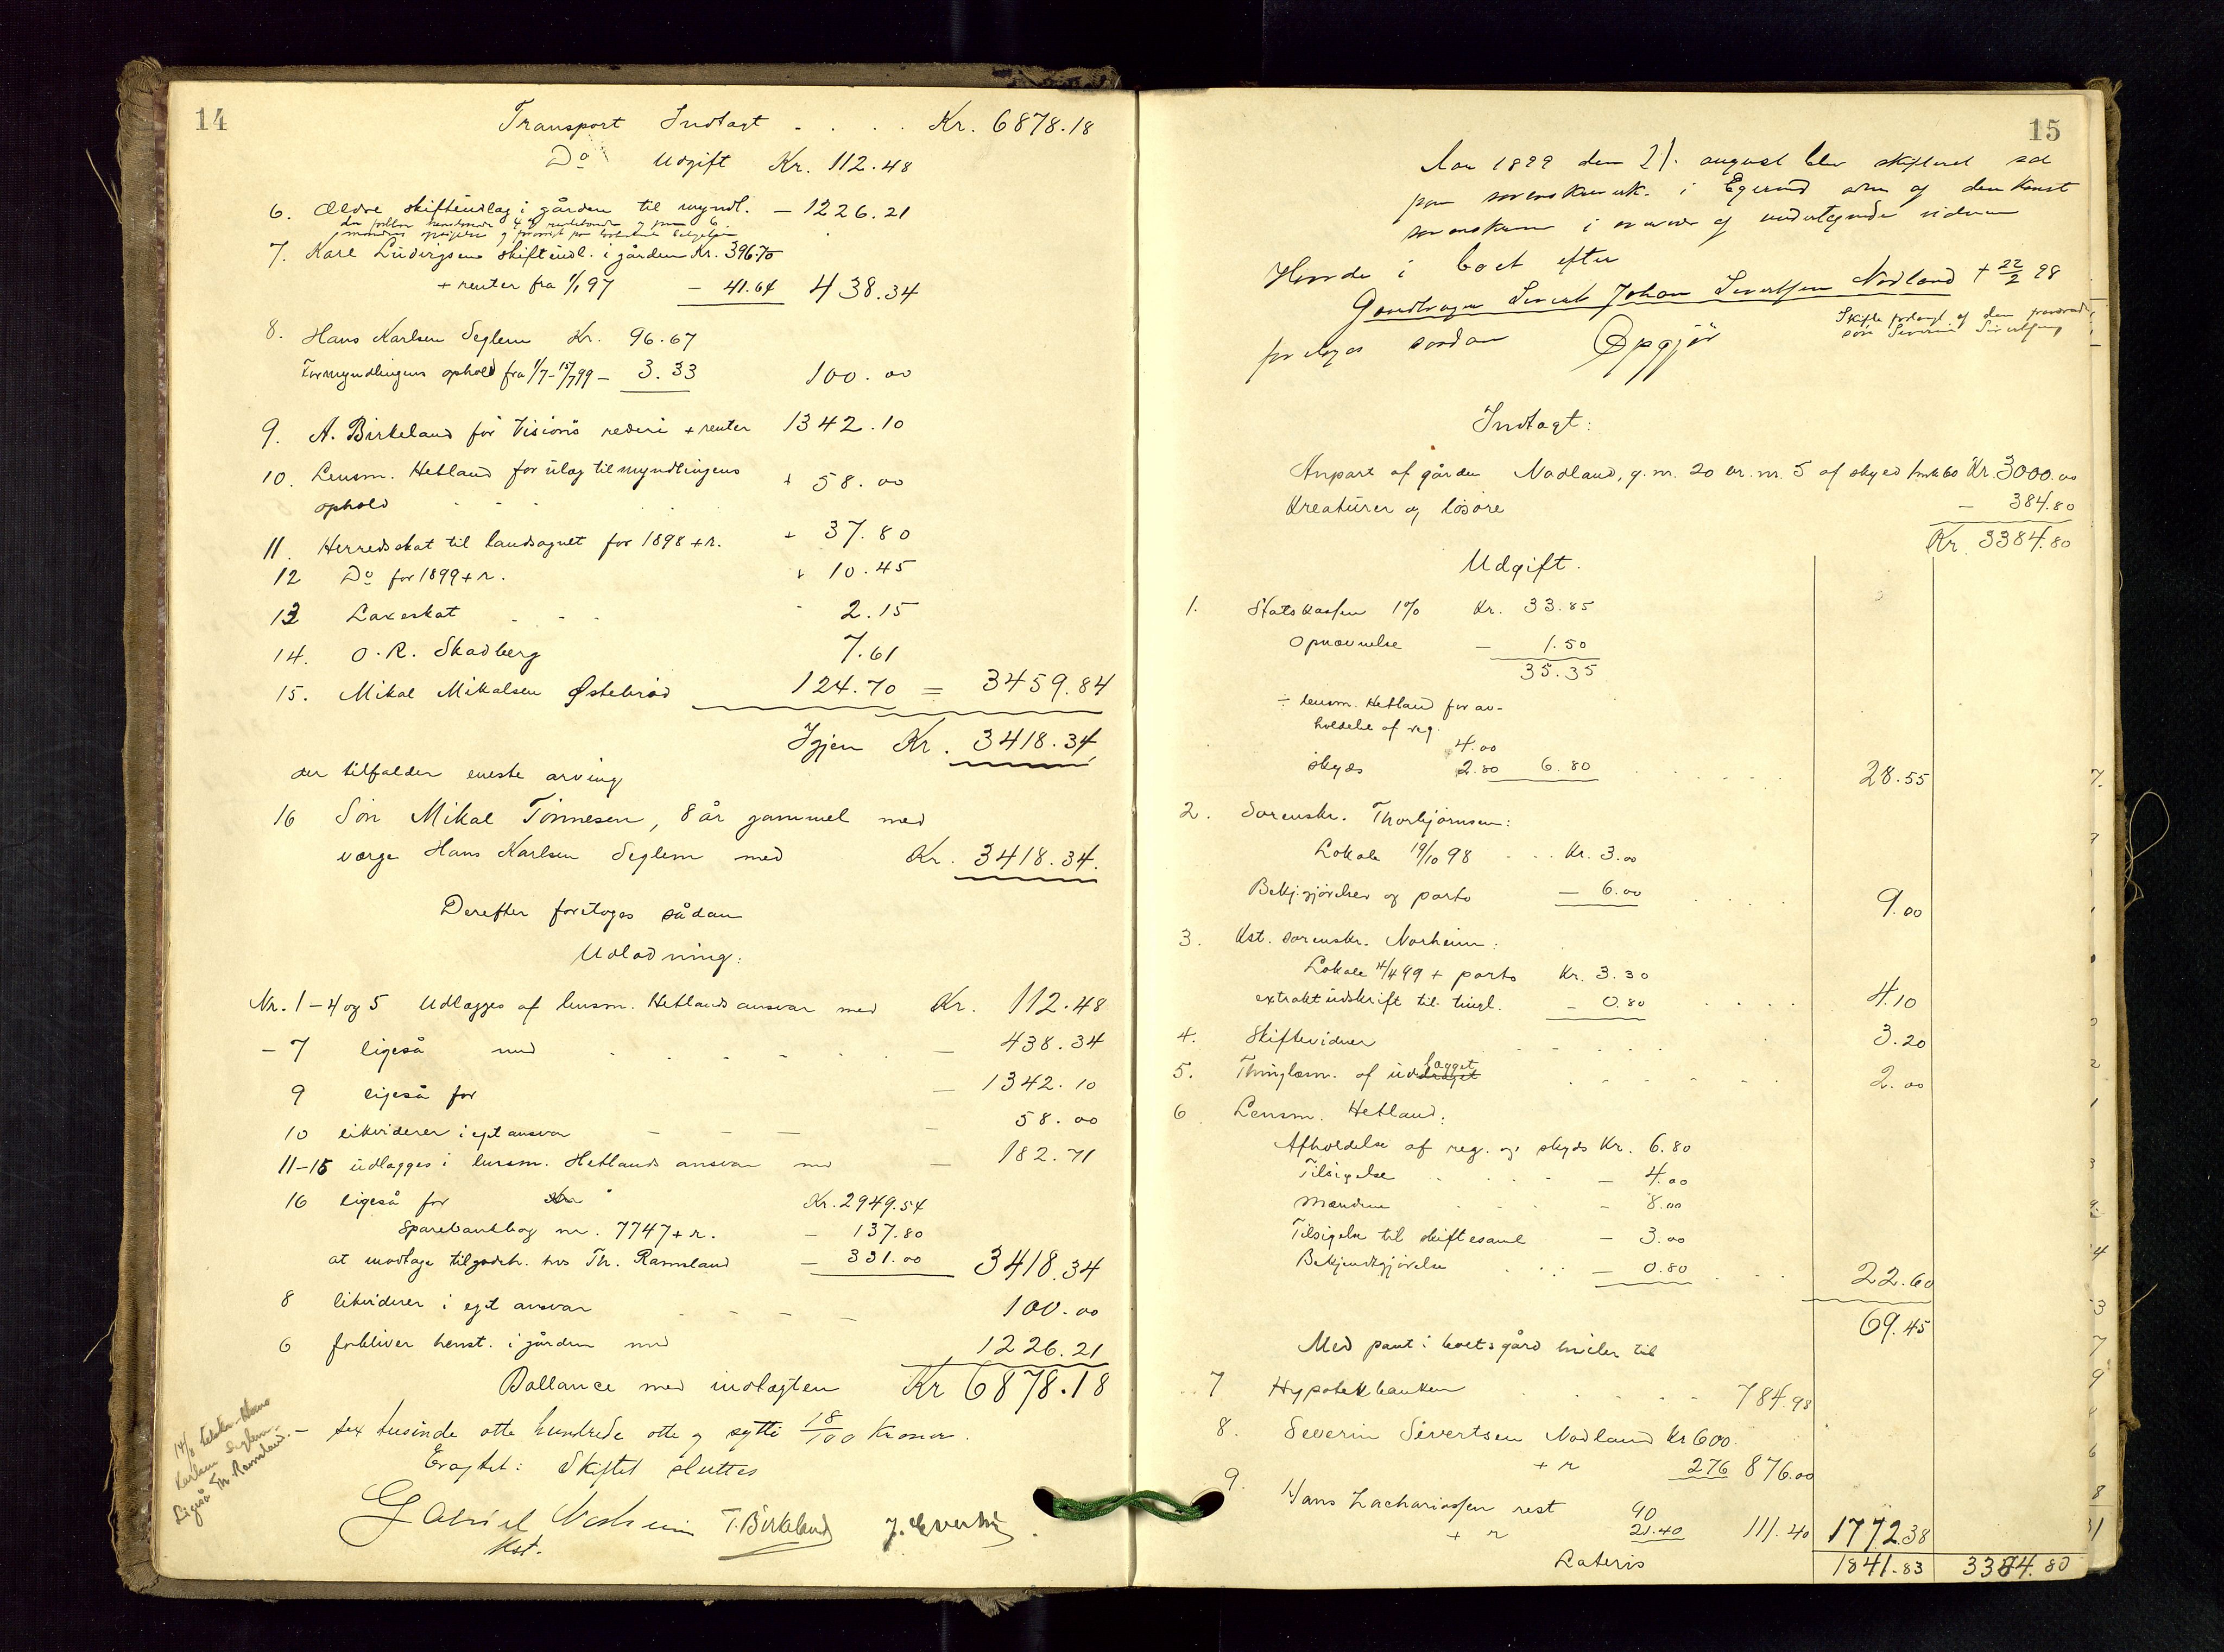 14
Transport Indtægt . . . . Kr. 6878.18
Do Udgift Kr. 112.48
6. Ældre skifteudlæg i gården til myndl. — 1226.21
7. Karl Ludvigsens skifteudl. i gården Kr. 396.70
+ renter fra 1/1 97 — 41.64 438.34
8. Hans Karlsen Seglem Kr. 96.67
For myndlingens ophold fra 1/7-15/7 99 — 3.33 100.00
9. A. Birkeland for Visions rederi + renter 1342.10
10. Lensm. Hetland for udlæg til myndlingens
ophold . . . 58.00
11. Herredsskat til landsognet for 1898 + r. 37.80
12 Do for 1899 + r. 10.45
13 Laxeskat . . . 2.15
14. O. R. Skadberg 7.61
15. Mikal Mikalsen Østebrød 124.70 = 3459.84
Igjen Kr. 3418.34
der tilfalder eneste arving
16 Søn Mikal Tønnesen, 8 år gammel med
værge Hans Karlsen Seglem med Kr. 3418.34.
Derefter foretoges sådan
Udlodning:
Nr. 1-4 og 5 Udlægges af lensm. Hetlands ansvar med Kr. 112.48
- 7 ligeså med — 438.34
9 ligeså for — 1342.10
10 likviderer i eget ansvar — 58.00
11-15 udlægges i lensm. Hetlands ansvar med — 182.71
16 ligeså for Kr. 2949.54
Sparebankbog nr. 7747 + r. — 137.80
at modtage tilgodeh. hos Th. Ramsland — 331.00 3418.34
8 likviderer i eget ansvar 100.00
6 forbliver henst. i gården med 1226.21
Ballance med indtægten Kr 6878.18
— sex tusinde otte hundrede otte og sytti 18/100 Kroner.
Eragtet: Skiftet sluttes
Gabriel Norheim T. Birkeland
Kst.
14/8 Hans
Karlsen Seglem.
Ligeså Th. Ramsland.
15
Aar 1899 den 21. august blev skifteret sat
paa sorenskr.k. i Egersund adm af den Konst
sorenskriver i nærvær af undertegnede vidner
Hvorda i boet efter
Gaardbruger Sivert Johan Sivertsen Nodland † 22/2 98
Skifte forlangt af den
søn Severin Sivertsen
foretoges saadan Opgjør
Indtægt:
Anpart af gården Nodland, g.nr. 20 br.nr. 5 af skyld 1 mk 60 Kr. 3000.00
Kreaturer og løsøre — 384.80
Kr. 3384.80
Udgift.
1. Statskassen 1% Kr. 33.85
Opnævnelse — 1.50
35.35
÷ lensm. Hetland for af-
holdelse af reg. 4.00
skyds 2.80 6.80 . . . 28.55
2. Sorenskr. Thorbjørnsen:
Lokale 19/10 98 . . . Kr. 3.00
Bekj.gjørelser og porto — 6.00 . . . 9.00
3. Kst. sorenskr. Norheim:
Lokale 11/4 99 + porto Kr. 3.30
extraktudskrift til tingl. — 0.80 . . . 4.10
4. Skiftevidner . . . 3.20
5. Thinglæsn. af udlægget . . . 2.00
6 Lensm. Hetland:
Afholdelse af reg. og skyds Kr. 6.80
Tilsigelse — 4.00
Mændene — 8.00
Tilsigelse til skiftesaml — 3.00
Bekjendtgjørelse — 0.80 . . . 22.60
69.45
Med pant i boets gård hviler til
7 Hypotekbanken . . . 784.98
8. Severin Sivertsen Nodland Kr 600.
+ r 276 876.00
9. Hans Zachariassen rest 90
+ r 21.40 111.40 1772.38
Lateris 1841.83 3384.80